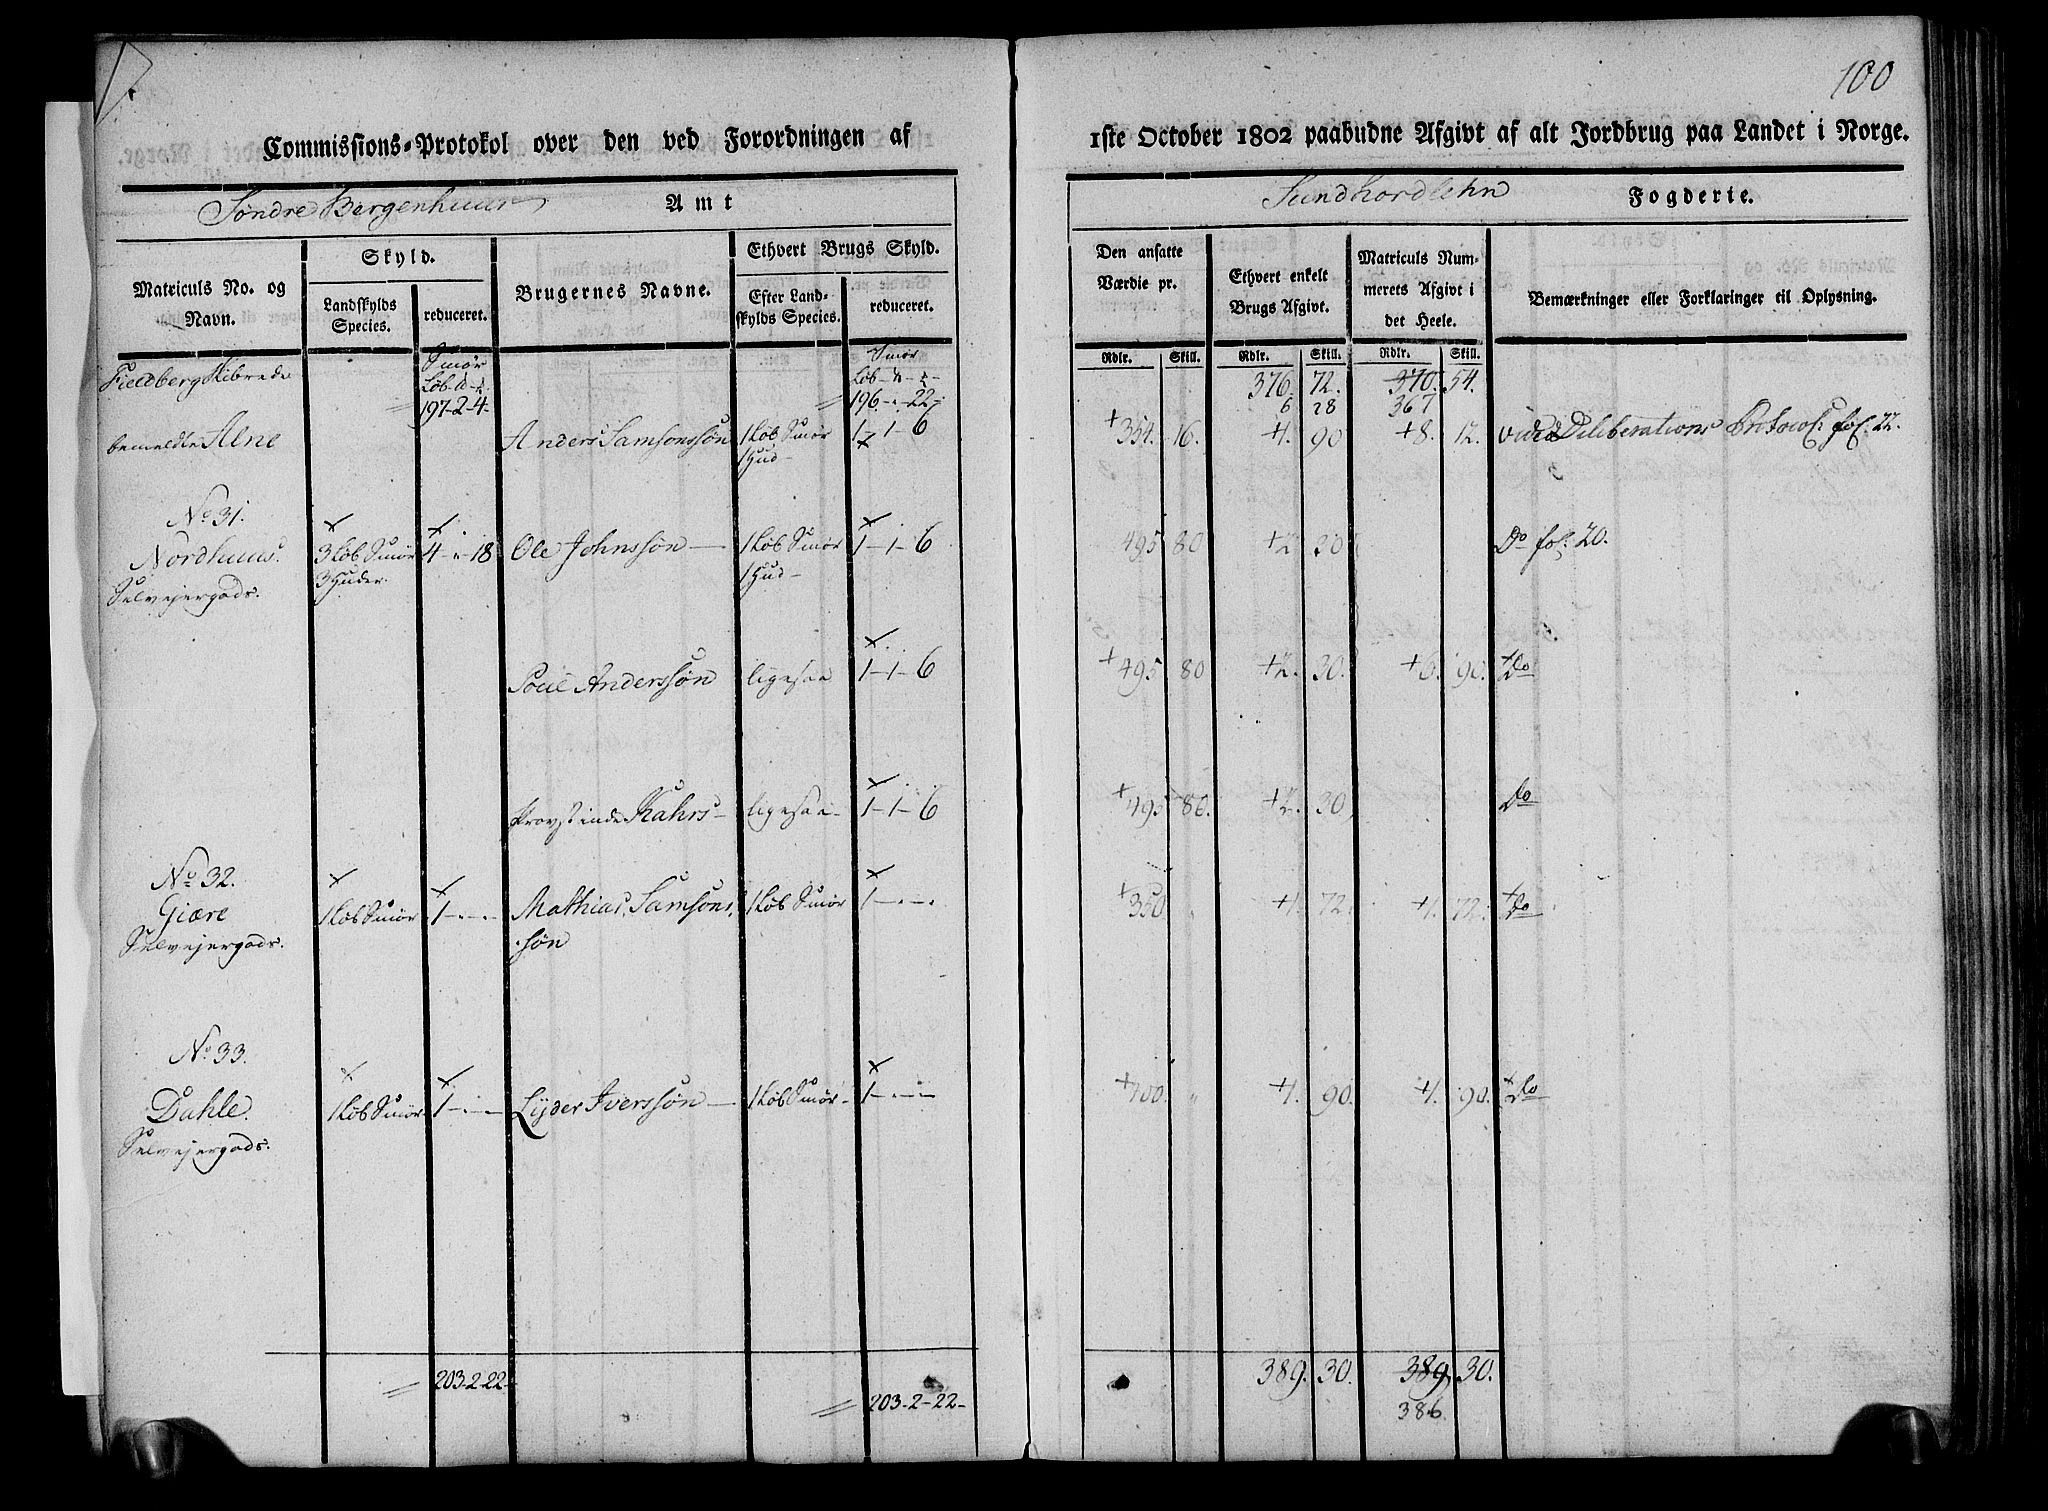 100
Commissions-Protokol over den ved Forordningen af
1ste October 1802 paabudne Afgivt af alt Jordbrug paa Landet i Norge.
Søndre Bergenhuus Amt
Sundhordlehn Fogderie.
Matriculs No. og Navn.
Skyld.
Landskylds Species.
reduceret.
Brugernes Navne.
Ethvert Brugs Skyld.
Efter Landskylds Species.
reduceret.
Den ansatte Værdie pr.
Ethvert enkelt Brugs Afgivt.
Matriculs Nummerets Afgivt i det Heele.
Bemærkninger eller Forklaringer til Oplysning.
Rdlr. Skill. Rdlr. Skill. Rdlr. Skill.
Fieldberg Skibrede
Smør
Løb
197-2-4-
Smør
Løb
196-"-22-
376. 72. 370. 54.
6 28 367
bemeldte Alne
Anders Samsonssøn
1 Løb Smør
1 Hud-
1-1-6
+354. 16. +4. 90 +8. 12. vide Deliberations Protocol fol. 22.
No 31.
Nordhuus.
Selvejergods.
3 Løb Smør
3 Huder.
4-"-18
Ole Johnssøn
1 Løb Smør
1 Hud-
1-1-6
495 80 +2 30 Do fol. 20.
Poul Anderssøn ligesaa 1-1-6
+495 80 +2. 30. +6. 90. +Do
Provstinde Kahrs- ligesaa- 1-1-6
+495 80. +2. 30 Do
No 32.
Giære
Selvejergods.
1 Løb Smør
1-"-"
Mathias Samsons
søn
1 Løb Smør
1-"-"
+350 " +1. 72. +1. 72. +Do
No 33.
Dahle.
Selvejergods.
1 Løb Smør
1-"-"
Lyder Iverssøn
1 Løb Smør-
1-"-"
+400. " +1. 90. +1. 90. +Do
203-2-22-
203-2-22-
389. 30. 389 30.
386